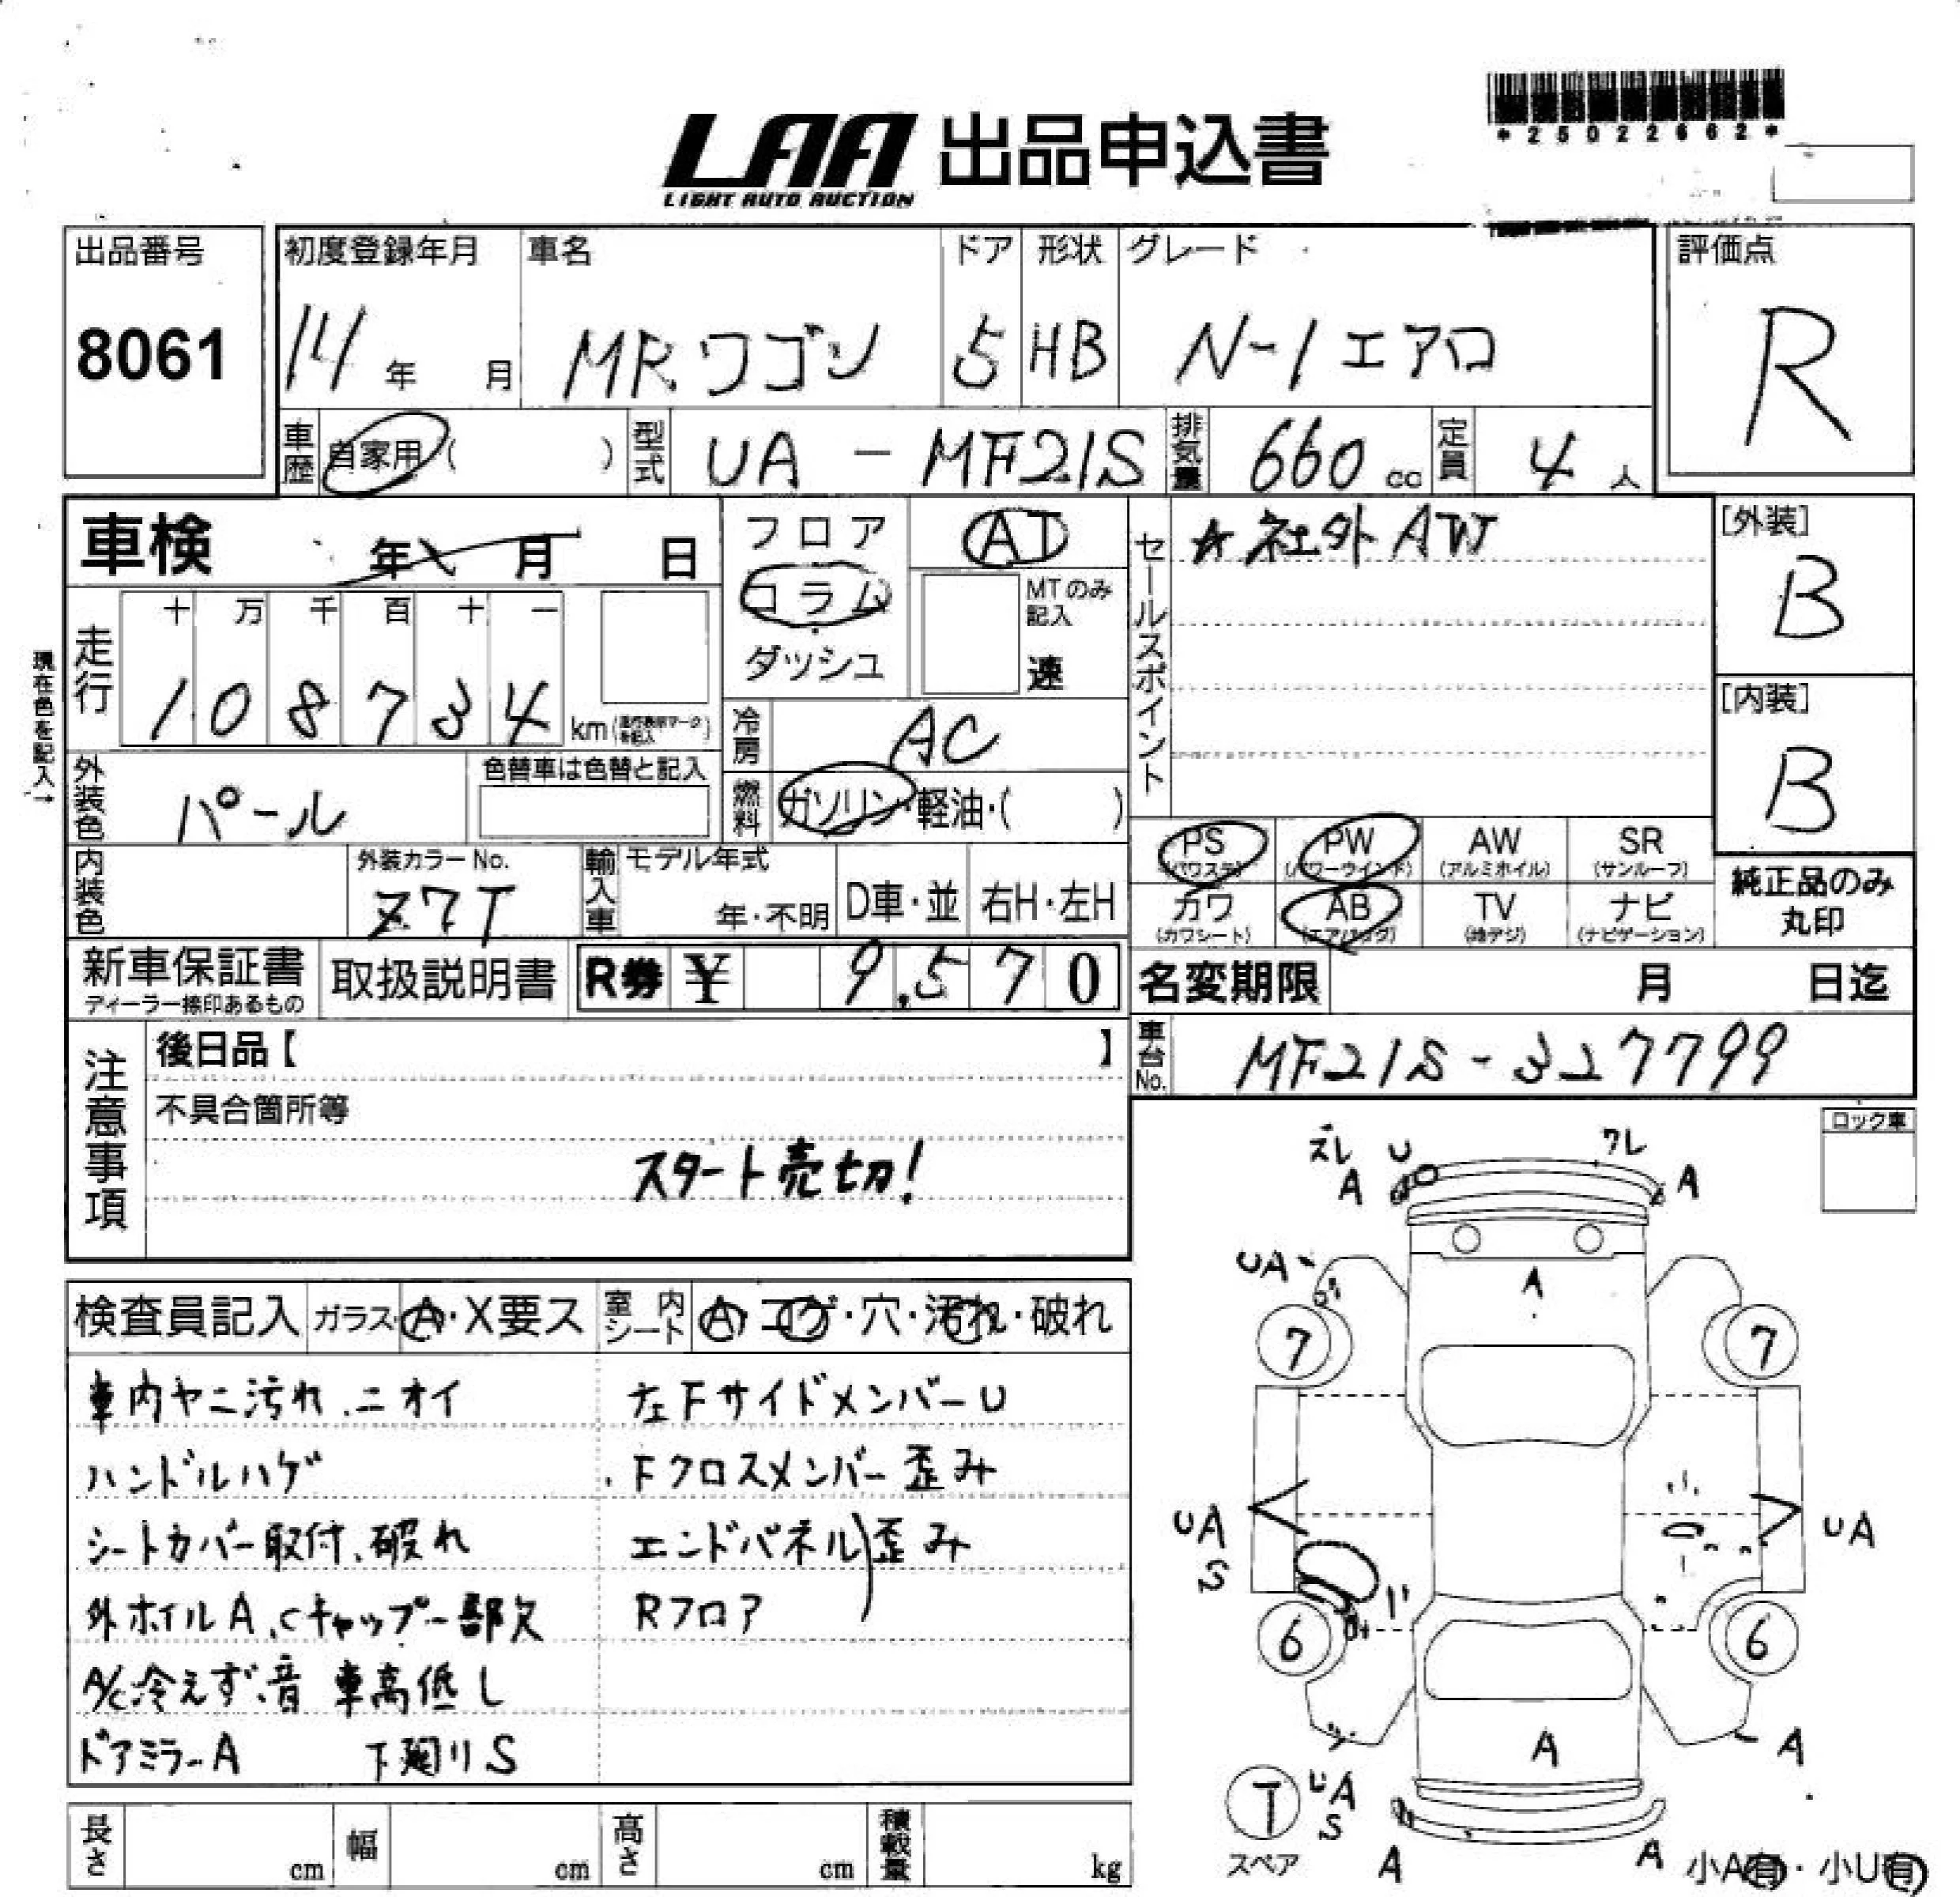 *25022662*
LAA 出品申込書
LIGHT AUTO AUCTION
出品番号 初度登録年月 車名 ドア 形状 グレード 評価点
8061 14年 月 MRワゴン 5 HB N-1エアロ R
車歴 自家用( ) 型式 UA-MF21S 排気量 660cc 定員 4人
車検 年 月 日
フロア
コラム
ダッシュ
AT
MTのみ記入
速
セールスポイント
☆社外AW
[外装]
B
[内装]
B
現在色を記入→
走行 十 万 千 百 十 一
1 0 8 7 3 4 km
冷房 AC
外装色 パール 色替車は色替と記入
燃料 ガソリン・軽油・( )
PS (パワステ) PW (パワーウインド) AW (アルミホイル) SR (サンルーフ)
カワ (カワシート) AB (エアバッグ) TV (地デジ) ナビ (ナビゲーション)
純正品のみ
丸印
内装色 外装カラーNo. Z7T 輸入車 モデル年式 年・不明 D車・並 右H・左H
新車保証書 取扱説明書 R券 ¥ 9,570 名変期限 月 日迄
ディーラー捺印あるもの
車台No. MF21S-327799
注意事項
後日品【 】
不具合箇所等
スタート売切!
ロック車
ズレ U ワレ
A A
UA A
7 7
UA UA
S
6 6
A A
T UA
S
スペア A A 小A有・小U有
検査員記入 ガラス A・X要ス 室内シート A・コゲ・穴・汚れ・破れ
車内ヤニ汚れ、ニオイ 左FサイドメンバーU
ハンドルハゲ Fクロスメンバー歪み
シートカバー取付、破れ エンドパネル)歪み
外ホイルA、Cキャップ一部欠 Rフロア
A/C冷えず、音 車高低し
ドアミラーA 下廻りS
長さ cm 幅 cm 高さ cm 積載量 kg